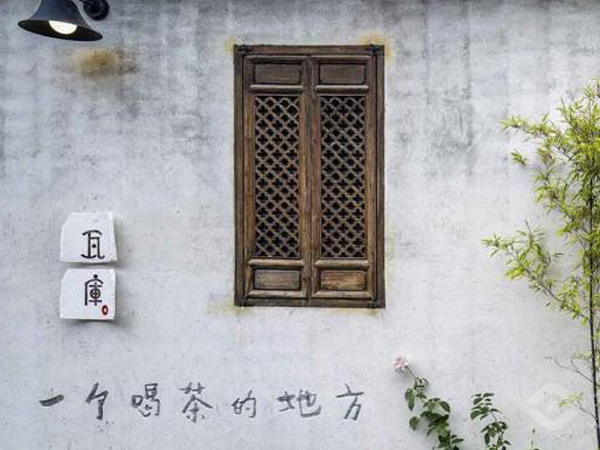 瓦
庫
一个喝茶的地方